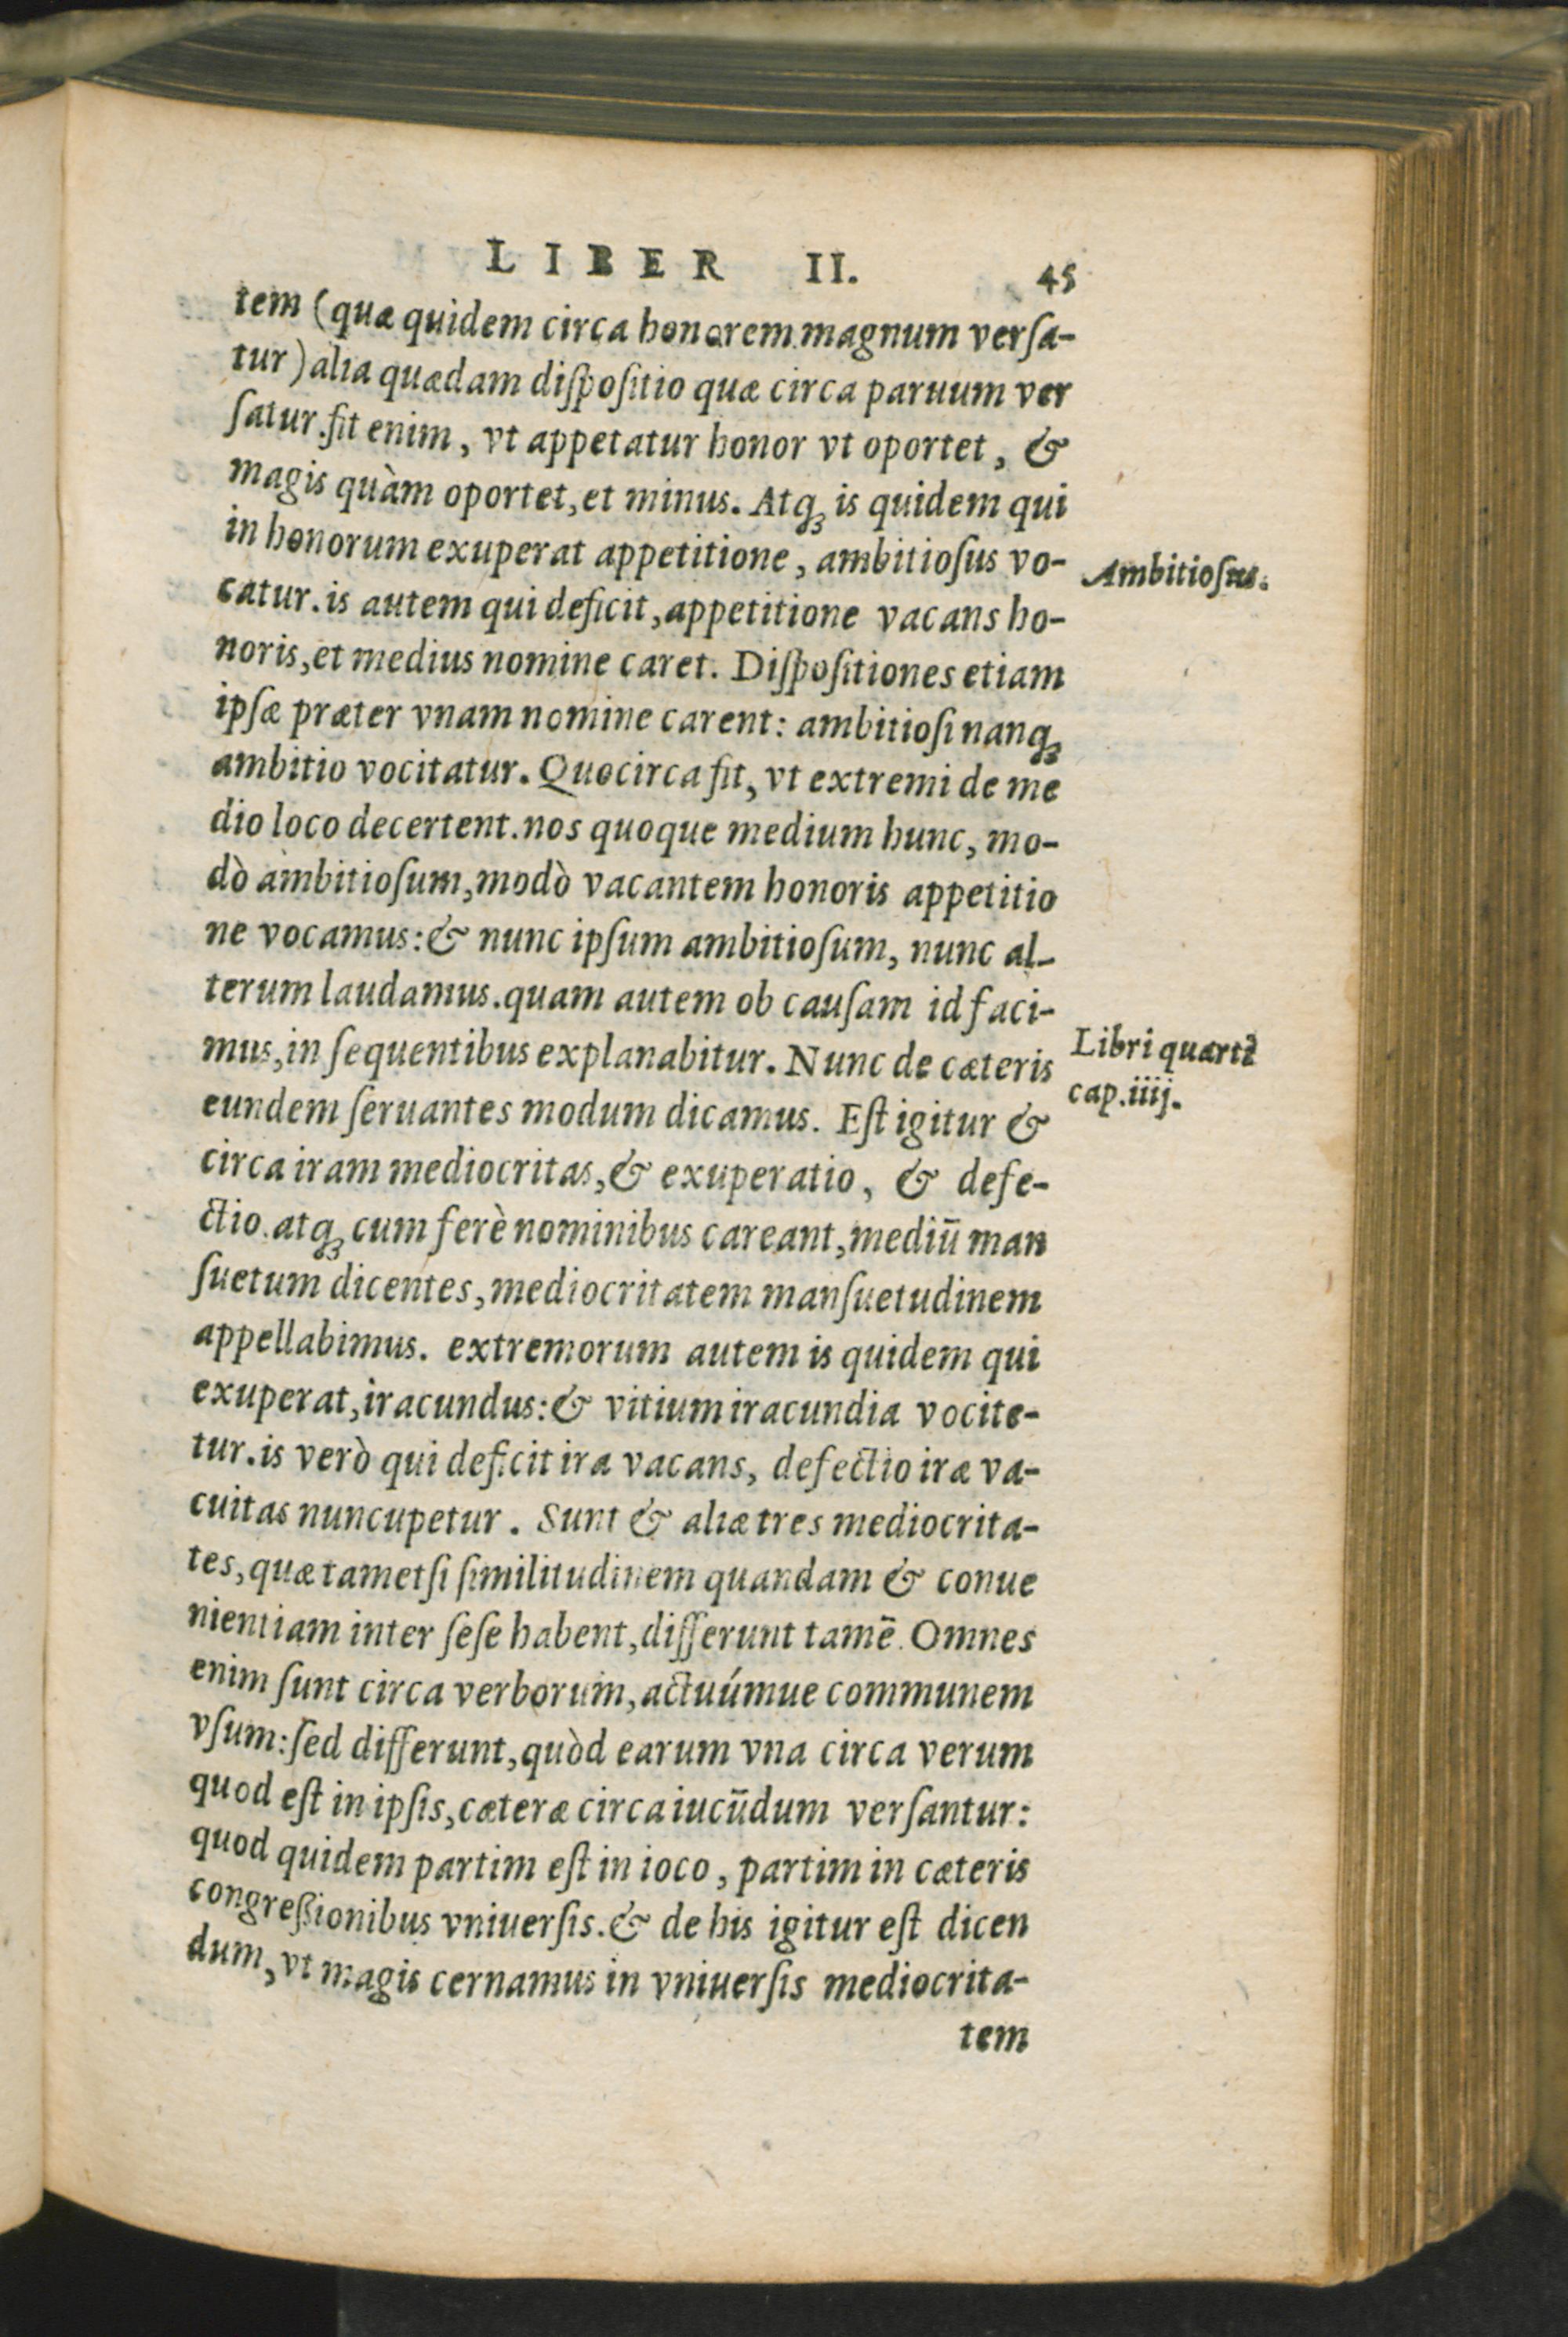 LIBER II. 45
tem (quæ quidem circa honorem magnum verſa-
tur) alia quædam diſpoſitio quæ circa paruum ver
ſatur. fit enim, vt appetatur honor vt oportet, &
magis quàm oportet, et minus. Atq; is quidem qui
in honorum exuperat appetitione, ambitioſus vo-
catur. is autem qui deficit, appetitione vacans ho-
noris, et medius nomine caret. Diſpoſitiones etiam
ipſæ præter vnam nomine carent: ambitioſi nanq;
ambitio vocitatur. Quocirca fit, vt extremi de me
dio loco decertent. nos quoque medium hunc, mo-
dò ambitioſum, modò vacantem honoris appetitio
ne vocamus: & nunc ipſum ambitioſum, nunc al-
terum laudamus. quam autem ob cauſam id faci-
mus, in ſequentibus explanabitur. Nunc de cæteris
eundem ſeruantes modum dicamus. Eſt igitur &
circa iram mediocritas, & exuperatio, & defe-
ctio. atq; cum ferè nominibus careant, mediū man
ſuetum dicentes, mediocritatem manſuetudinem
appellabimus. extremorum autem is quidem qui
exuperat, iracundus: & vitium iracundia vocite-
tur. is verò qui deficit ira vacans, defectio iræ va-
cuitas nuncupetur. Sunt & aliæ tres mediocrita-
tes, quæ tametſi ſimilitudinem quandam & conue
nientiam inter ſeſe habent, differunt tamē. Omnes
enim ſunt circa verborum, actuúmue communem
vſum: ſed differunt, quòd earum vna circa verum
quod eſt in ipſis, cæteræ circa iucūdum verſantur:
quod quidem partim eſt in ioco, partim in cæteris
congreßionibus vniuerſis. & de his igitur eſt dicen
dum, vt magis cernamus in vniuerſis mediocrita-
tem
Ambitioſus.
Libri quarti
cap. iiij.